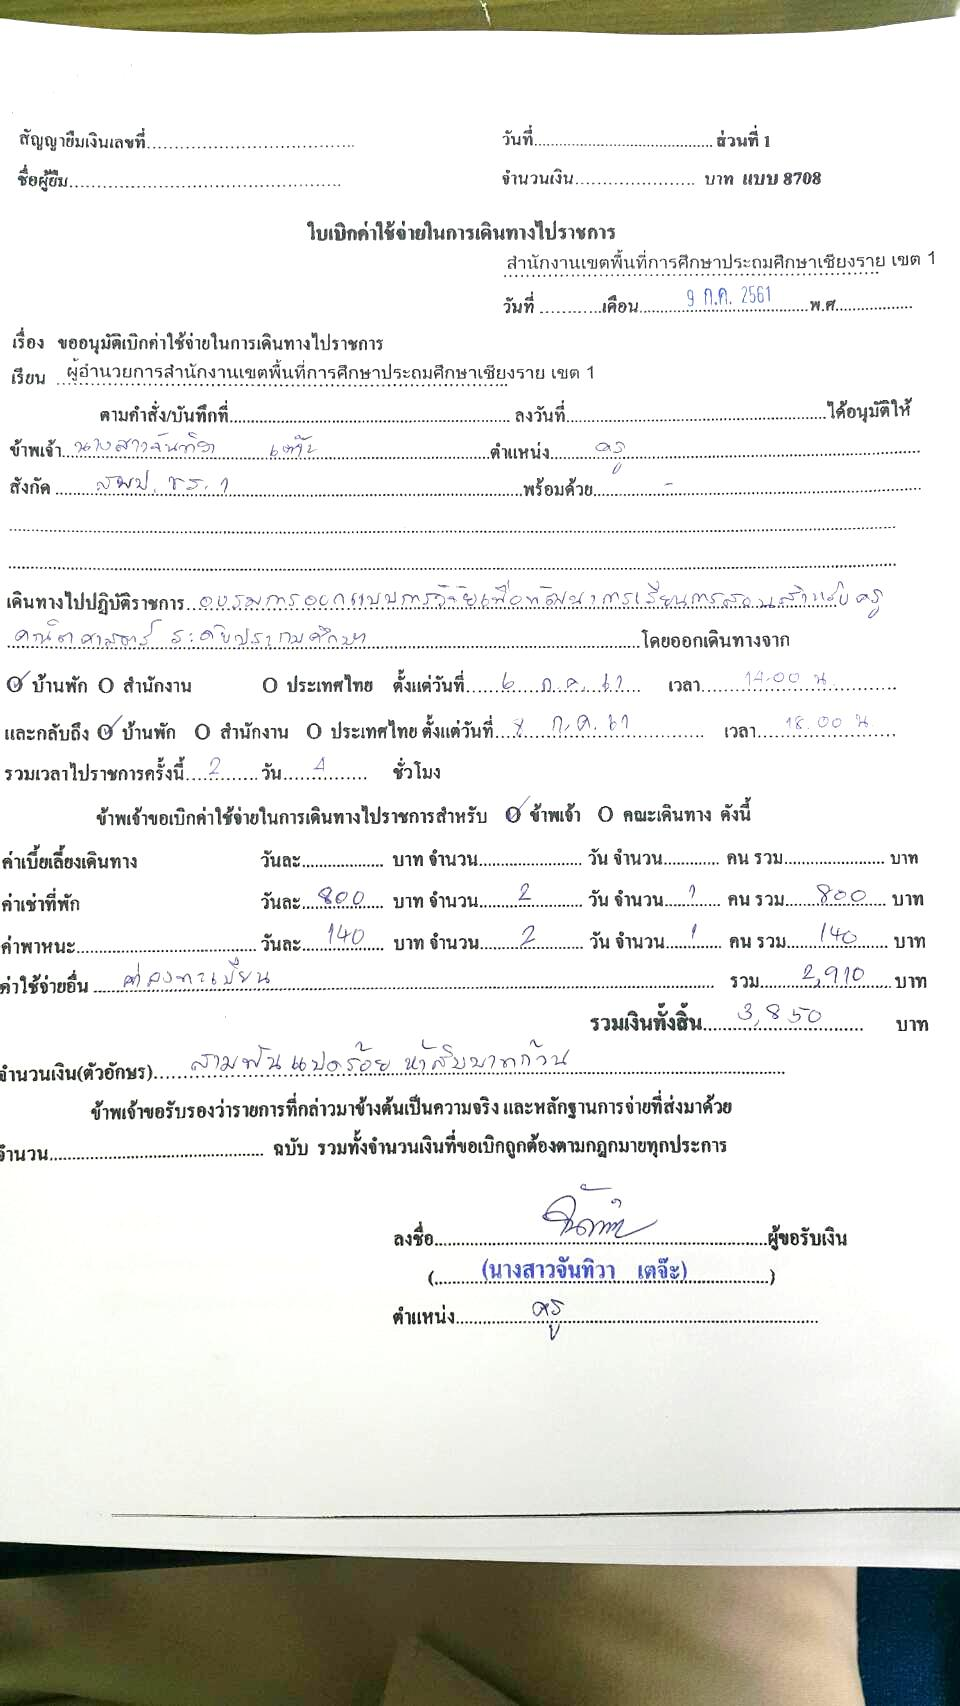 สัญญายืมเงินเลขที่.................................... วันที่.......................................... ส่วนที่ 1
ชื่อผู้ยืม............................................... จำนวนเงิน...................... บาท แบบ 8708
ใบเบิกค่าใช้จ่ายในการเดินทางไปราชการ
สำนักงานเขตพื้นที่การศึกษาประถมศึกษาเชียงราย เขต 1
วันที่ ...........เดือน 9 ก.ค. 2561 พ.ศ..................
เรื่อง ขออนุมัติเบิกค่าใช้จ่ายในการเดินทางไปราชการ
เรียน ผู้อำนวยการสำนักงานเขตพื้นที่การศึกษาประถมศึกษาเชียงราย เขต 1
ตามคำสั่ง/บันทึกที่.................................................. ลงวันที่..................................................ได้อนุมัติให้
ข้าพเจ้า นางสาวจันทิวา เตจ๊ะ ตำแหน่ง ครู
สังกัด สพป. ชร. 1 พร้อมด้วย -
เดินทางไปปฏิบัติราชการ อบรมการออกแบบการวิจัยเพื่อพัฒนาการเรียนการสอนสำหรับครู
คณิตศาสตร์ ระดับประถมศึกษา โดยออกเดินทางจาก
บ้านพัก O สำนักงาน O ประเทศไทย ตั้งแต่วันที่ 6 ก.ค. 61 เวลา 14.00 น.
และกลับถึง บ้านพัก O สำนักงาน O ประเทศไทย ตั้งแต่วันที่ ก.ค. 61 เวลา 18.00 น.
รวมเวลาไปราชการครั้งนี้ 2 วัน 4 ชั่วโมง
ข้าพเจ้าขอเบิกค่าใช้จ่ายในการเดินทางไปราชการสำหรับ ข้าพเจ้า O คณะเดินทาง ดังนี้
ค่าเบี้ยเลี้ยงเดินทาง วันละ.................. บาท จำนวน...................... วัน จำนวน............ คน รวม...................... บาท
ค่าเช่าที่พัก วันละ 800 บาท จำนวน 2 วัน จำนวน 1 คน รวม 800 บาท
ค่าพาหนะ วันละ 140 บาท จำนวน 2 วัน จำนวน 1 คน รวม 140 บาท
ค่าใช้จ่ายอื่น ค่าลงทะเบียน รวม 2,910 บาท
รวมเงินทั้งสิ้น 3,850 บาท
จำนวนเงิน(ตัวอักษร) สามพันแปดร้อยห้าสิบบาทถ้วน
ข้าพเจ้าขอรับรองว่ารายการที่กล่าวมาข้างต้นเป็นความจริง และหลักฐานการจ่ายที่ส่งมาด้วย
จำนวน............................................... ฉบับ รวมทั้งจำนวนเงินที่ขอเบิกถูกต้องตามกฎหมายทุกประการ
ลงชื่อ จันทิวา ผู้ขอรับเงิน
(นางสาวจันทิวา เตจ๊ะ)
ตำแหน่ง ครู